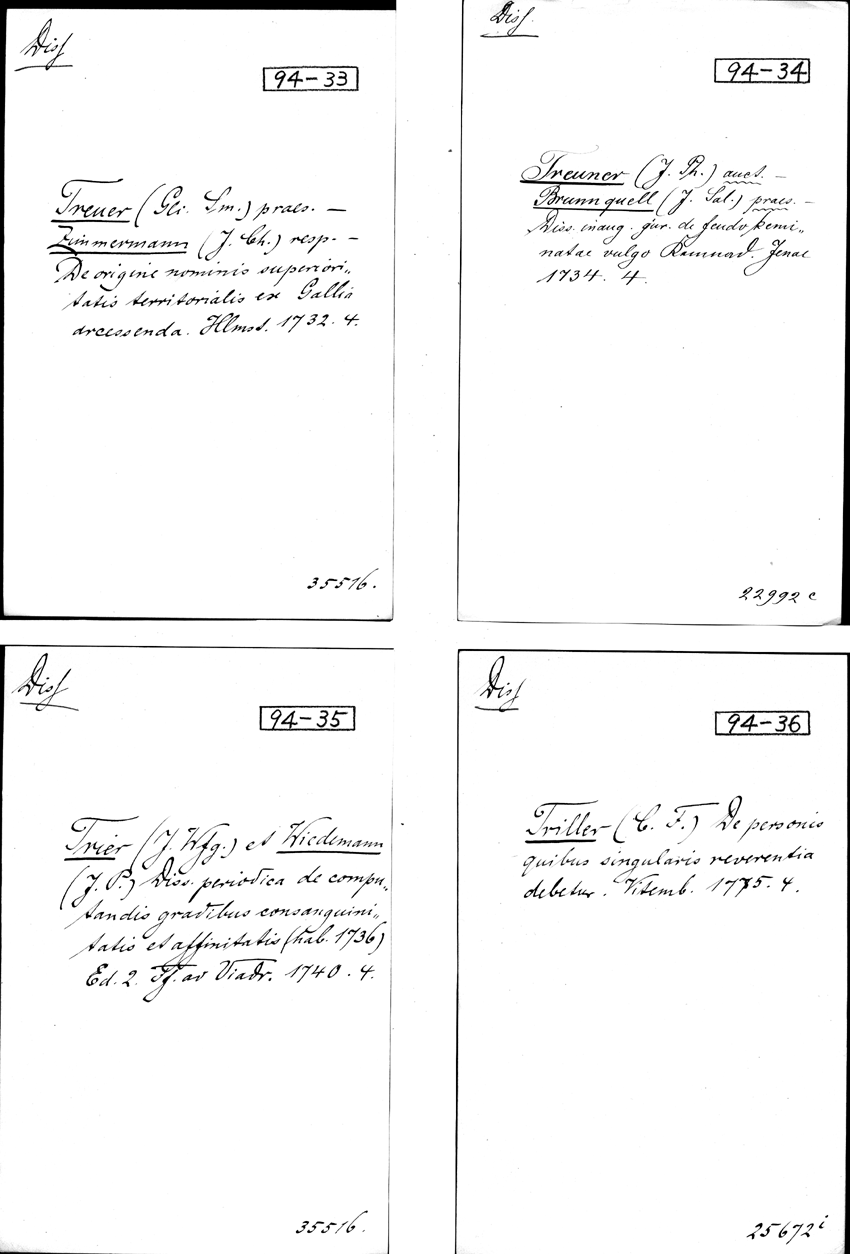 Diss
94-33
Treuer (Gli. Sm.) praes. —
Zimmermann (J. Ch.) resp. -
De origine nominis superiori„
tatis territorialis ex Gallia
arcessenda. Hlmst. 1732. 4.
35516.
Diss.
94-34
Treuner (J. Ph.) auct. —
Brunnquell (J. Sal.) praes. -
Diss. inaug. jur. de feudo kemi„
natae vulgo Kemnad. Jenae
1734. 4.
22992 c
Diss
94-35
Trier (J. Wfg.) et Wiedemann
(J. P.) Diss. periodica de compu„
tandis gradibus consanguini„
tatis et affinitatis (hab. 1736)
Ed. 2. Ff. ad Viadr. 1740. 4.
35516.
Diss
94-36
Triller (C. F.) De personis
quibus singularis reverentia
debetur. Vitemb. 1775. 4.
25672 i